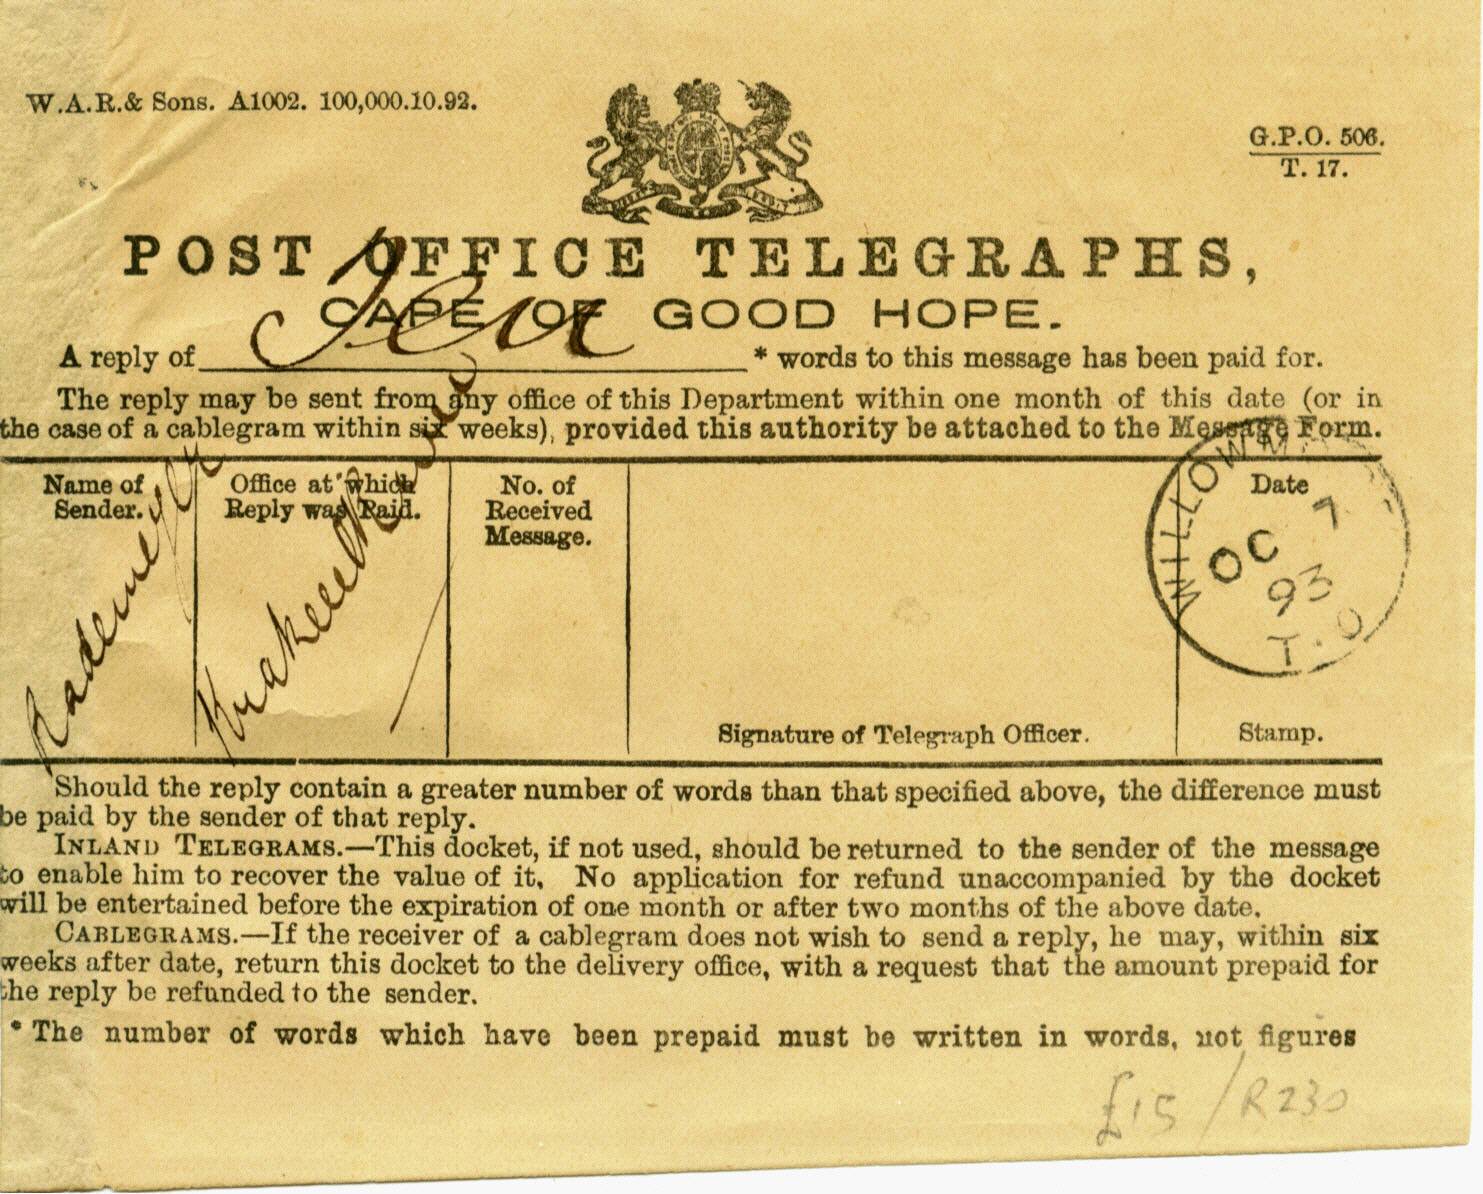 W.A.R.& Sons. A1002. 100,000.10.92.
G.P.O. 506.
T. 17.
POST OFFICE TELEGRAPHS,
CAPE OF GOOD HOPE.
A reply of Ten * words to this message has been paid for.
The reply may be sent from any office of this Department within one month of this date (or in
the case of a cablegram within six weeks), provided this authority be attached to the Message Form.
Name of
Sender.
Rademeyer
Office at which
Reply was Paid.
No. of
Received
Message.
Signature of Telegraph Officer.
Date
WILLOWMORE
OC 7
93
T.O
Stamp.
Should the reply contain a greater number of words than that specified above, the difference must
be paid by the sender of that reply.
INLAND TELEGRAMS.—This docket, if not used, should be returned to the sender of the message
to enable him to recover the value of it. No application for refund unaccompanied by the docket
will be entertained before the expiration of one month or after two months of the above date.
CABLEGRAMS.—If the receiver of a cablegram does not wish to send a reply, he may, within six
weeks after date, return this docket to the delivery office, with a request that the amount prepaid for
the reply be refunded to the sender.
* The number of words which have been prepaid must be written in words, not figures
£15 / R230